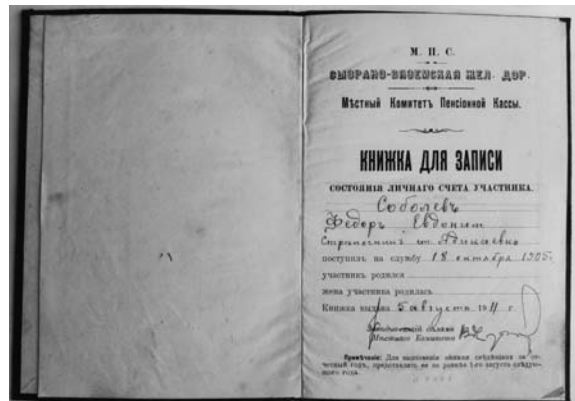 М. П. С.
СЫЗРАНО-ВЯЗЕМСКАЯ ЖЕЛ. ДОР.
Мѣстный Комитетъ Пенсіонной Кассы.
КНИЖКА ДЛЯ ЗАПИСИ
СОСТОЯНІЯ ЛИЧНАГО СЧЕТА УЧАСТНИКА.
Соболевъ
Ѳедоръ Евдоким
ст.
поступилъ на службу 18 октября 1905.
участникъ родился
жена участника родилась
Книжка выдана 5 августа 1911 г.
Мѣстнаго Комитета
Примѣчаніе: Для выполненія свѣдѣніями за от-
четный годъ, представлять ее не ранѣе 1-го августа слѣдую-
щаго года.